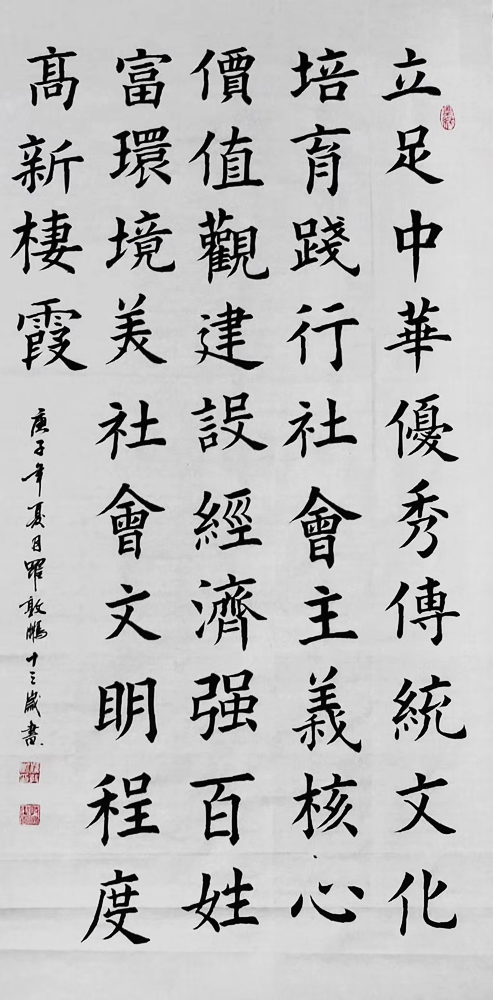 立足中華優秀傳統文化
培育踐行社會主義核心
價值觀建設經濟强百姓
富環境美社會文明程度
髙新棲霞
庚子年夏月 敦鵬十三歲書